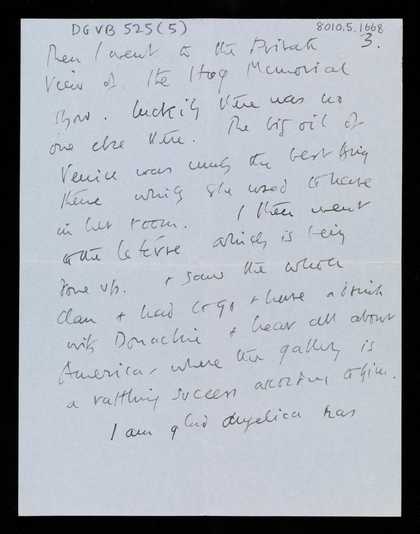 DGVB 525 (5)
8010.5.1668
3.
Then I went to the Private
View of the Memorial
Show. Luckily there was no
one else there. The big oil of
Venice was much the best thing
there which she used to have
in her room. I then went
to the Lefevre which is being
done up. + saw the whole
clan + had to go + have a drink
with Donachie + hear all about
America, where the gallery is
a rattling success according to him.
I am glad Angelica has